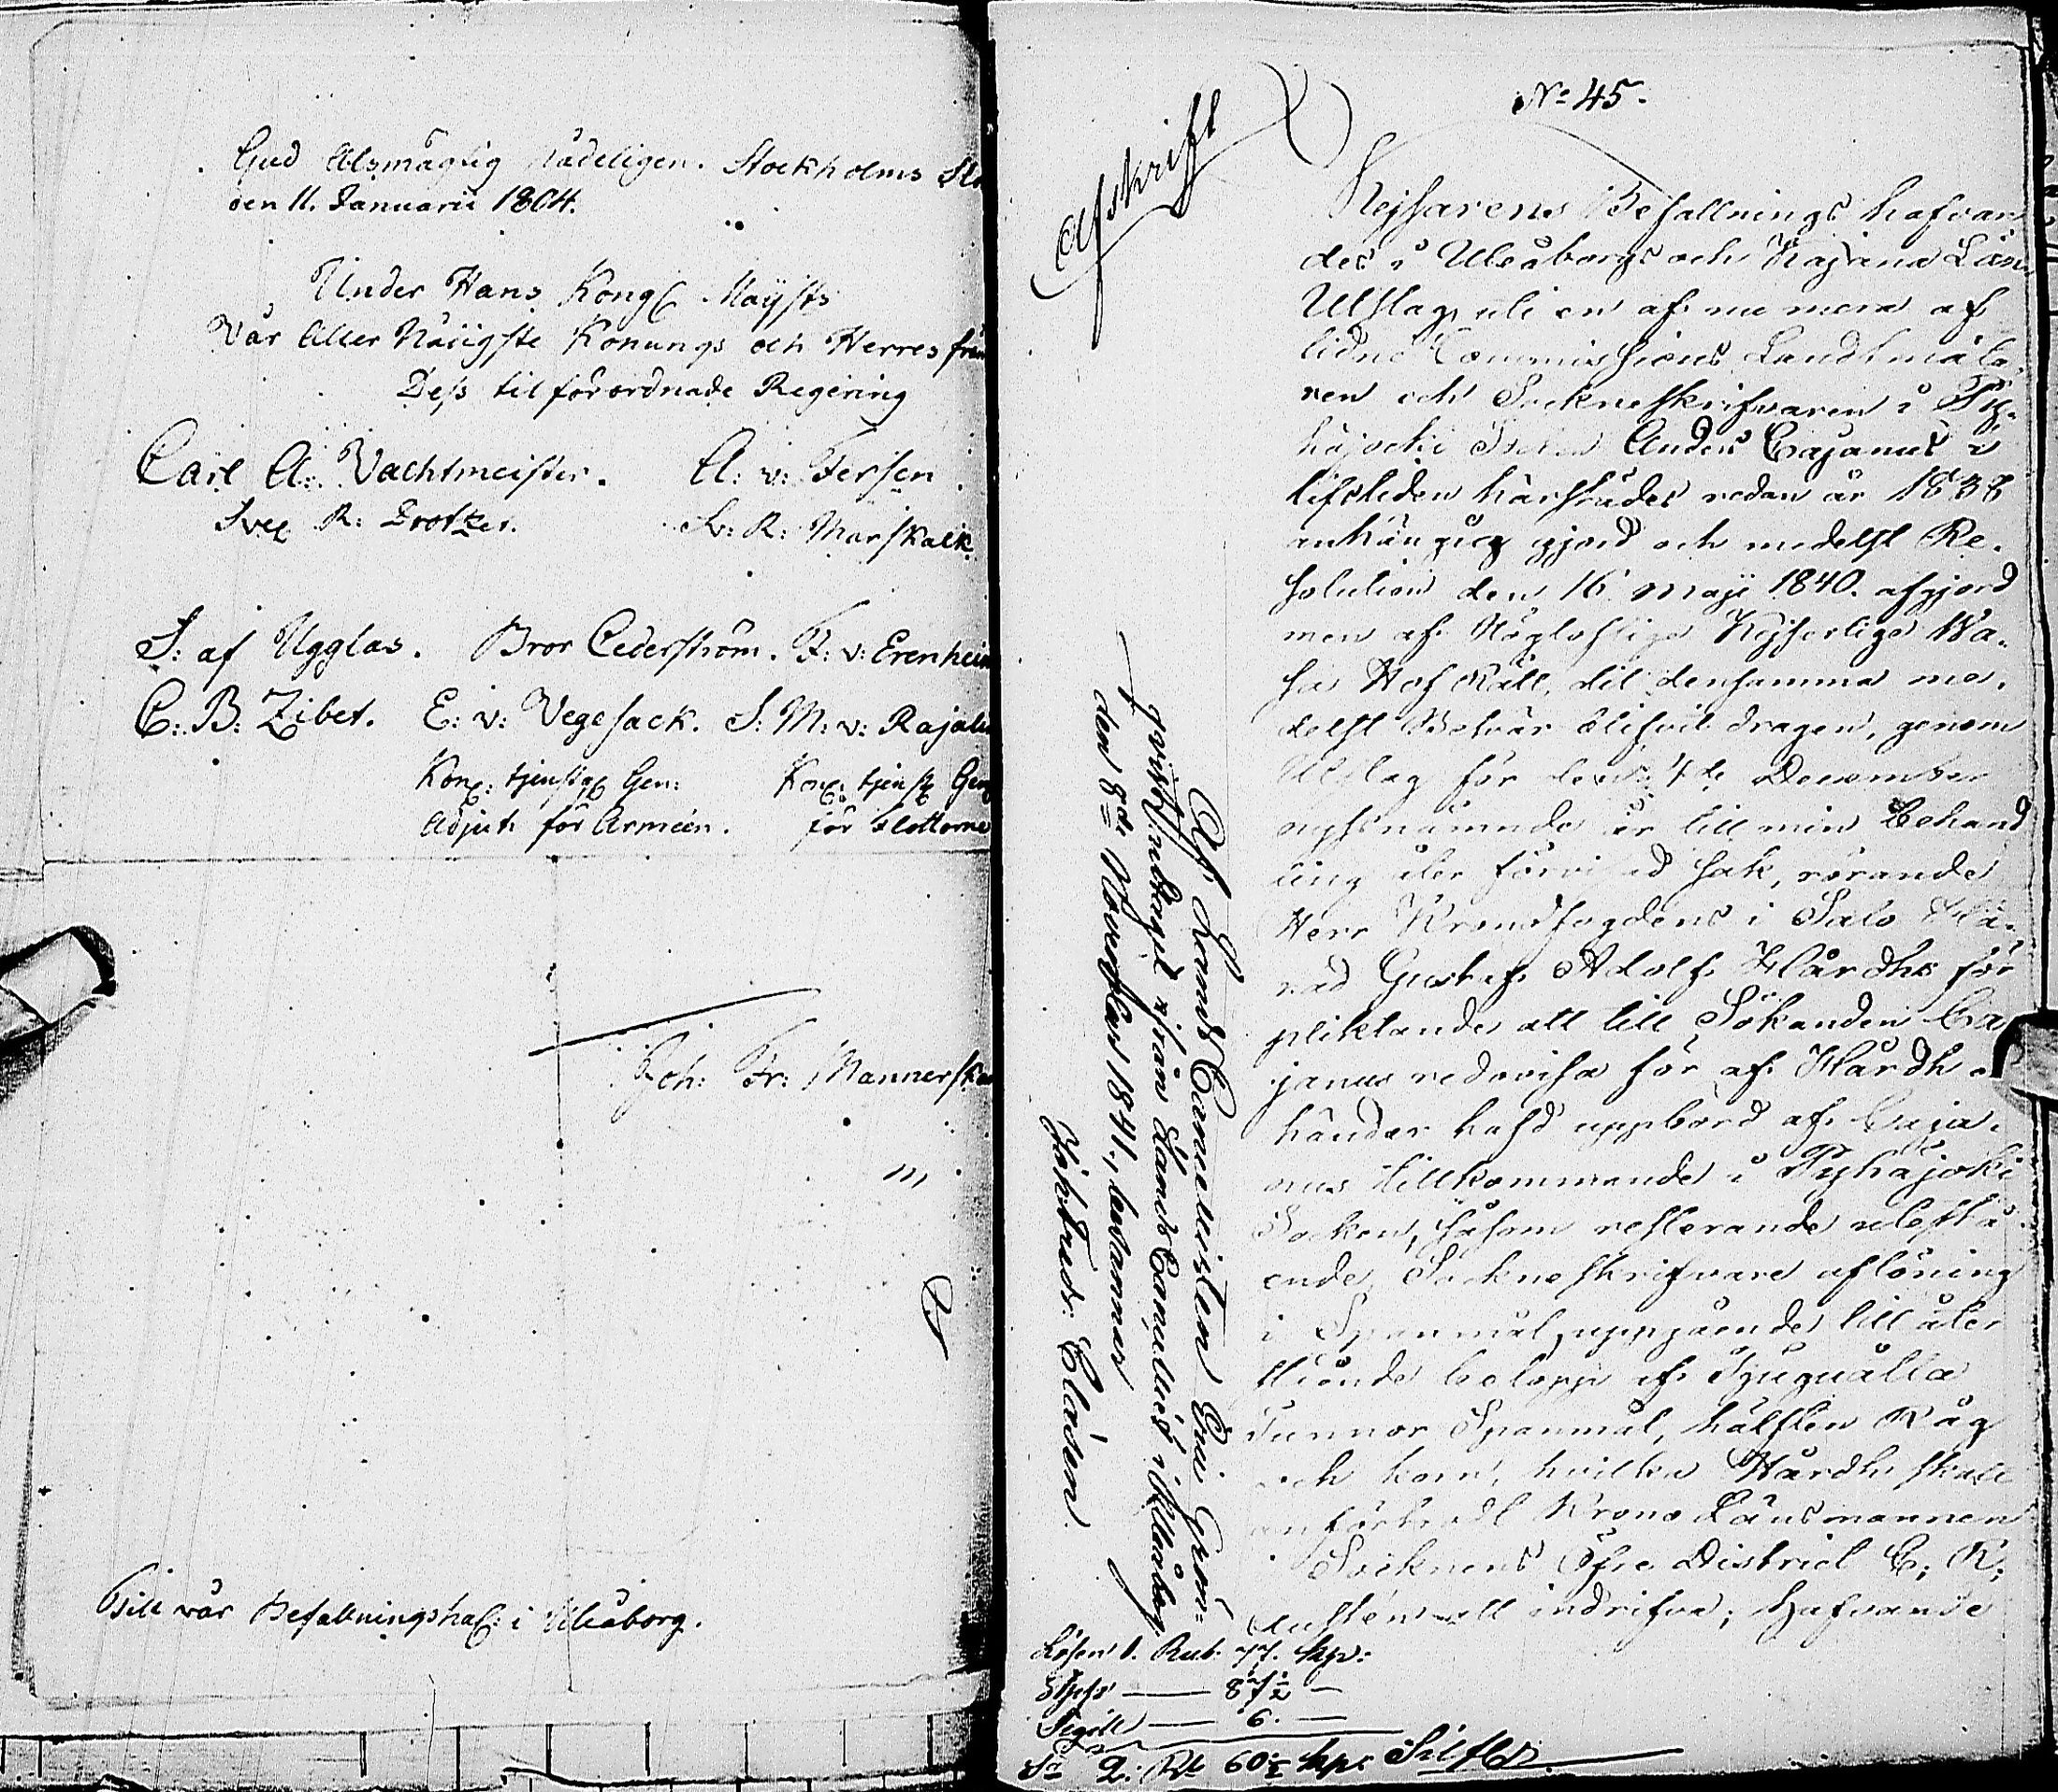 Gud Alsmägtig Nådeligen. Stockholms Slo
den 11. Januarii 1804.
Under Hans Kongl Maijsts
Vår Aller Nådigste Konungs och Herres från
Dess tilförordnade Regering
Carl A: Vachtmeister. A: v: Fersen.
Sve R: Drotzet. Sv: R: Marskalk
S: af Ugglas. Bror Cederström. F: v: Erenheim
C: B: Zibet. E: v: Vegesack. S: M: v: Rajalin
Kong: tjenstg Gen: Kong: tjenstg Gen
Adjut: för Arméen. för Flottorne
Joh: Fr: Mannersk
Till vår Befallningshaf: i Uleåborg.
No 45.
Afskrift
Kejsarens Befallnings hafvan
des i Uleåborgs och Kajana Län
Utslag uti en af nu mera af
lidne Commissions Landtmäta
ren och Sockneskrifvaren i Py
häjocki Anders Cajanus i
lifstiden härstädes redan år 1838
anhängig gjord och medelst Re
solution den 16 Maji 1840. afgjord
men af Höglofliga Kejserliga Wa
sa Hof Rätt, dit densamma me
delst Besvär blifvit dragen, genom
Utslag för den 4de December
nystnämnde år till min Behand
ling åter förvisad sak, rörande
Herr Kronofogdens i Salo Hä
rad Gustaf Adolf Hårdhs för
pliktande att till Sökanden Ca
janus redovisa för af Hårdh o
händer hafd uppbörd af Caja
nus tillkommande i Pyhäjoki
Socken, såsom resterande utestå
ende Sockneskrifvare aflöning
i Spanmål, uppgående till åter
stående belopp af Tjuguåtta
Tunnor Spanmål, hälften Råg
och korn, hvilka Hårdh skall
anförtrodt Krono Länsmannen
i Socknens Öfre District C. R.
att indrifva; Hafvande
Af Lands Cancellisten Eric
från Lands Cancelliet i Uleåborg
den 8de November 1841, bekommit
Clasén
Lösen 1. Rub. 77. kop:
87½
Sigill 6.
Sa 2: Rb 60½ kop: Silfver